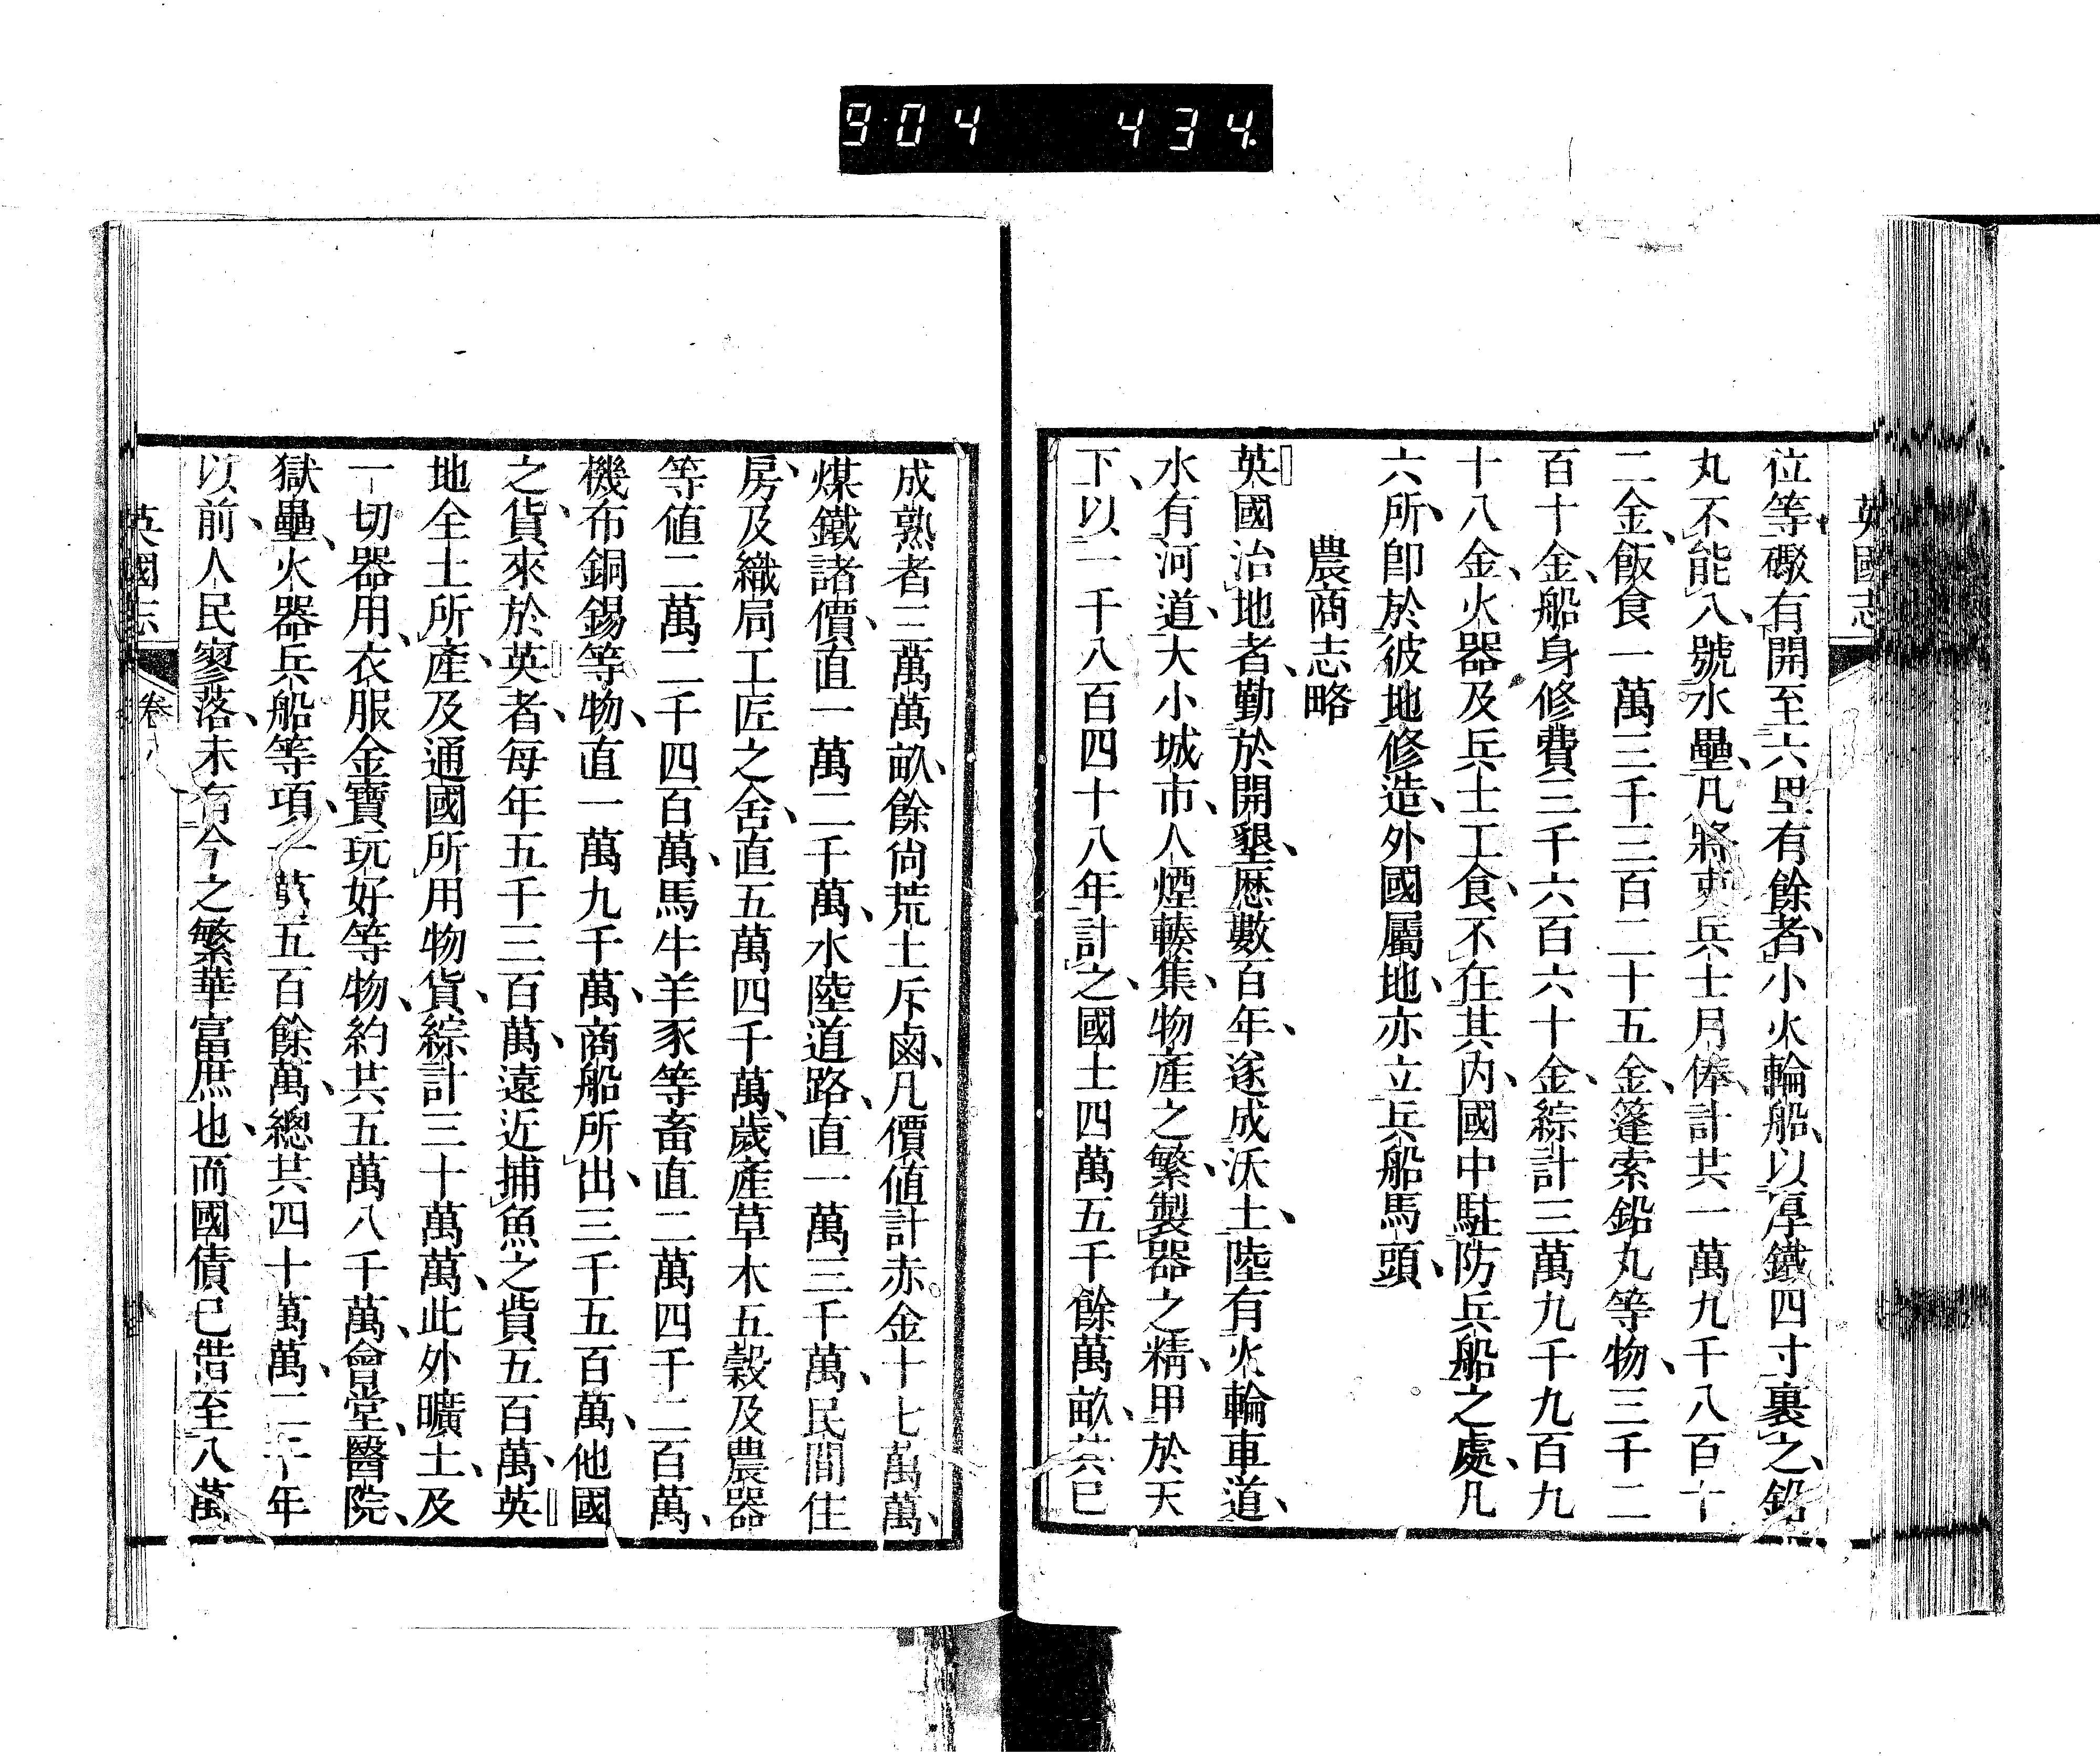 904 434
英國志
位等礮有開至六里有餘者小火輪船以厚鐵四寸裹之鉛
丸不能入號水壘凡將吏兵士月俸計共一萬九千八百十
二金飯食一萬三千三百二十五金篷索鉛丸等物三千二
百十金船身修費三千六百六十金綜計三萬九千九百九
十八金火器及兵士工食不在其內國中駐防兵船之處凡
六所卽於彼地修造外國屬地亦立兵船馬頭
農商志略
英國治地者勤於開墾歷數百年遂成沃土陸有火輪車道
水有河道大小城市人煙輳集物產之繁製器之精甲於天
下以一千八百四十八年計之國土四萬五千餘萬畝其已
成熟者三萬萬畝餘尙荒土斥鹵凡價値計赤金十七萬萬
煤鐵諸價直一萬二千萬水陸道路直一萬三千萬民間住
房及織局工匠之舍直五萬四千萬歲產草木五穀及農器
等値二萬二千四百萬馬牛羊豕等畜直二萬四千二百萬
機布銅錫等物直一萬九千萬商船所出三千五百萬他國
之貨來於英者每年五千三百萬遠近捕魚之貨五百萬英
地全土所產及通國所用物貨綜計三十萬萬此外曠土及
一切器用衣服金寶玩好等物約共五萬八千萬會堂醫院
獄壘火器兵船等項一萬五百餘萬總共四十萬萬二千年
以前人民寥落未有今之繁華富庶也而國債已借至八萬
英國志 卷八